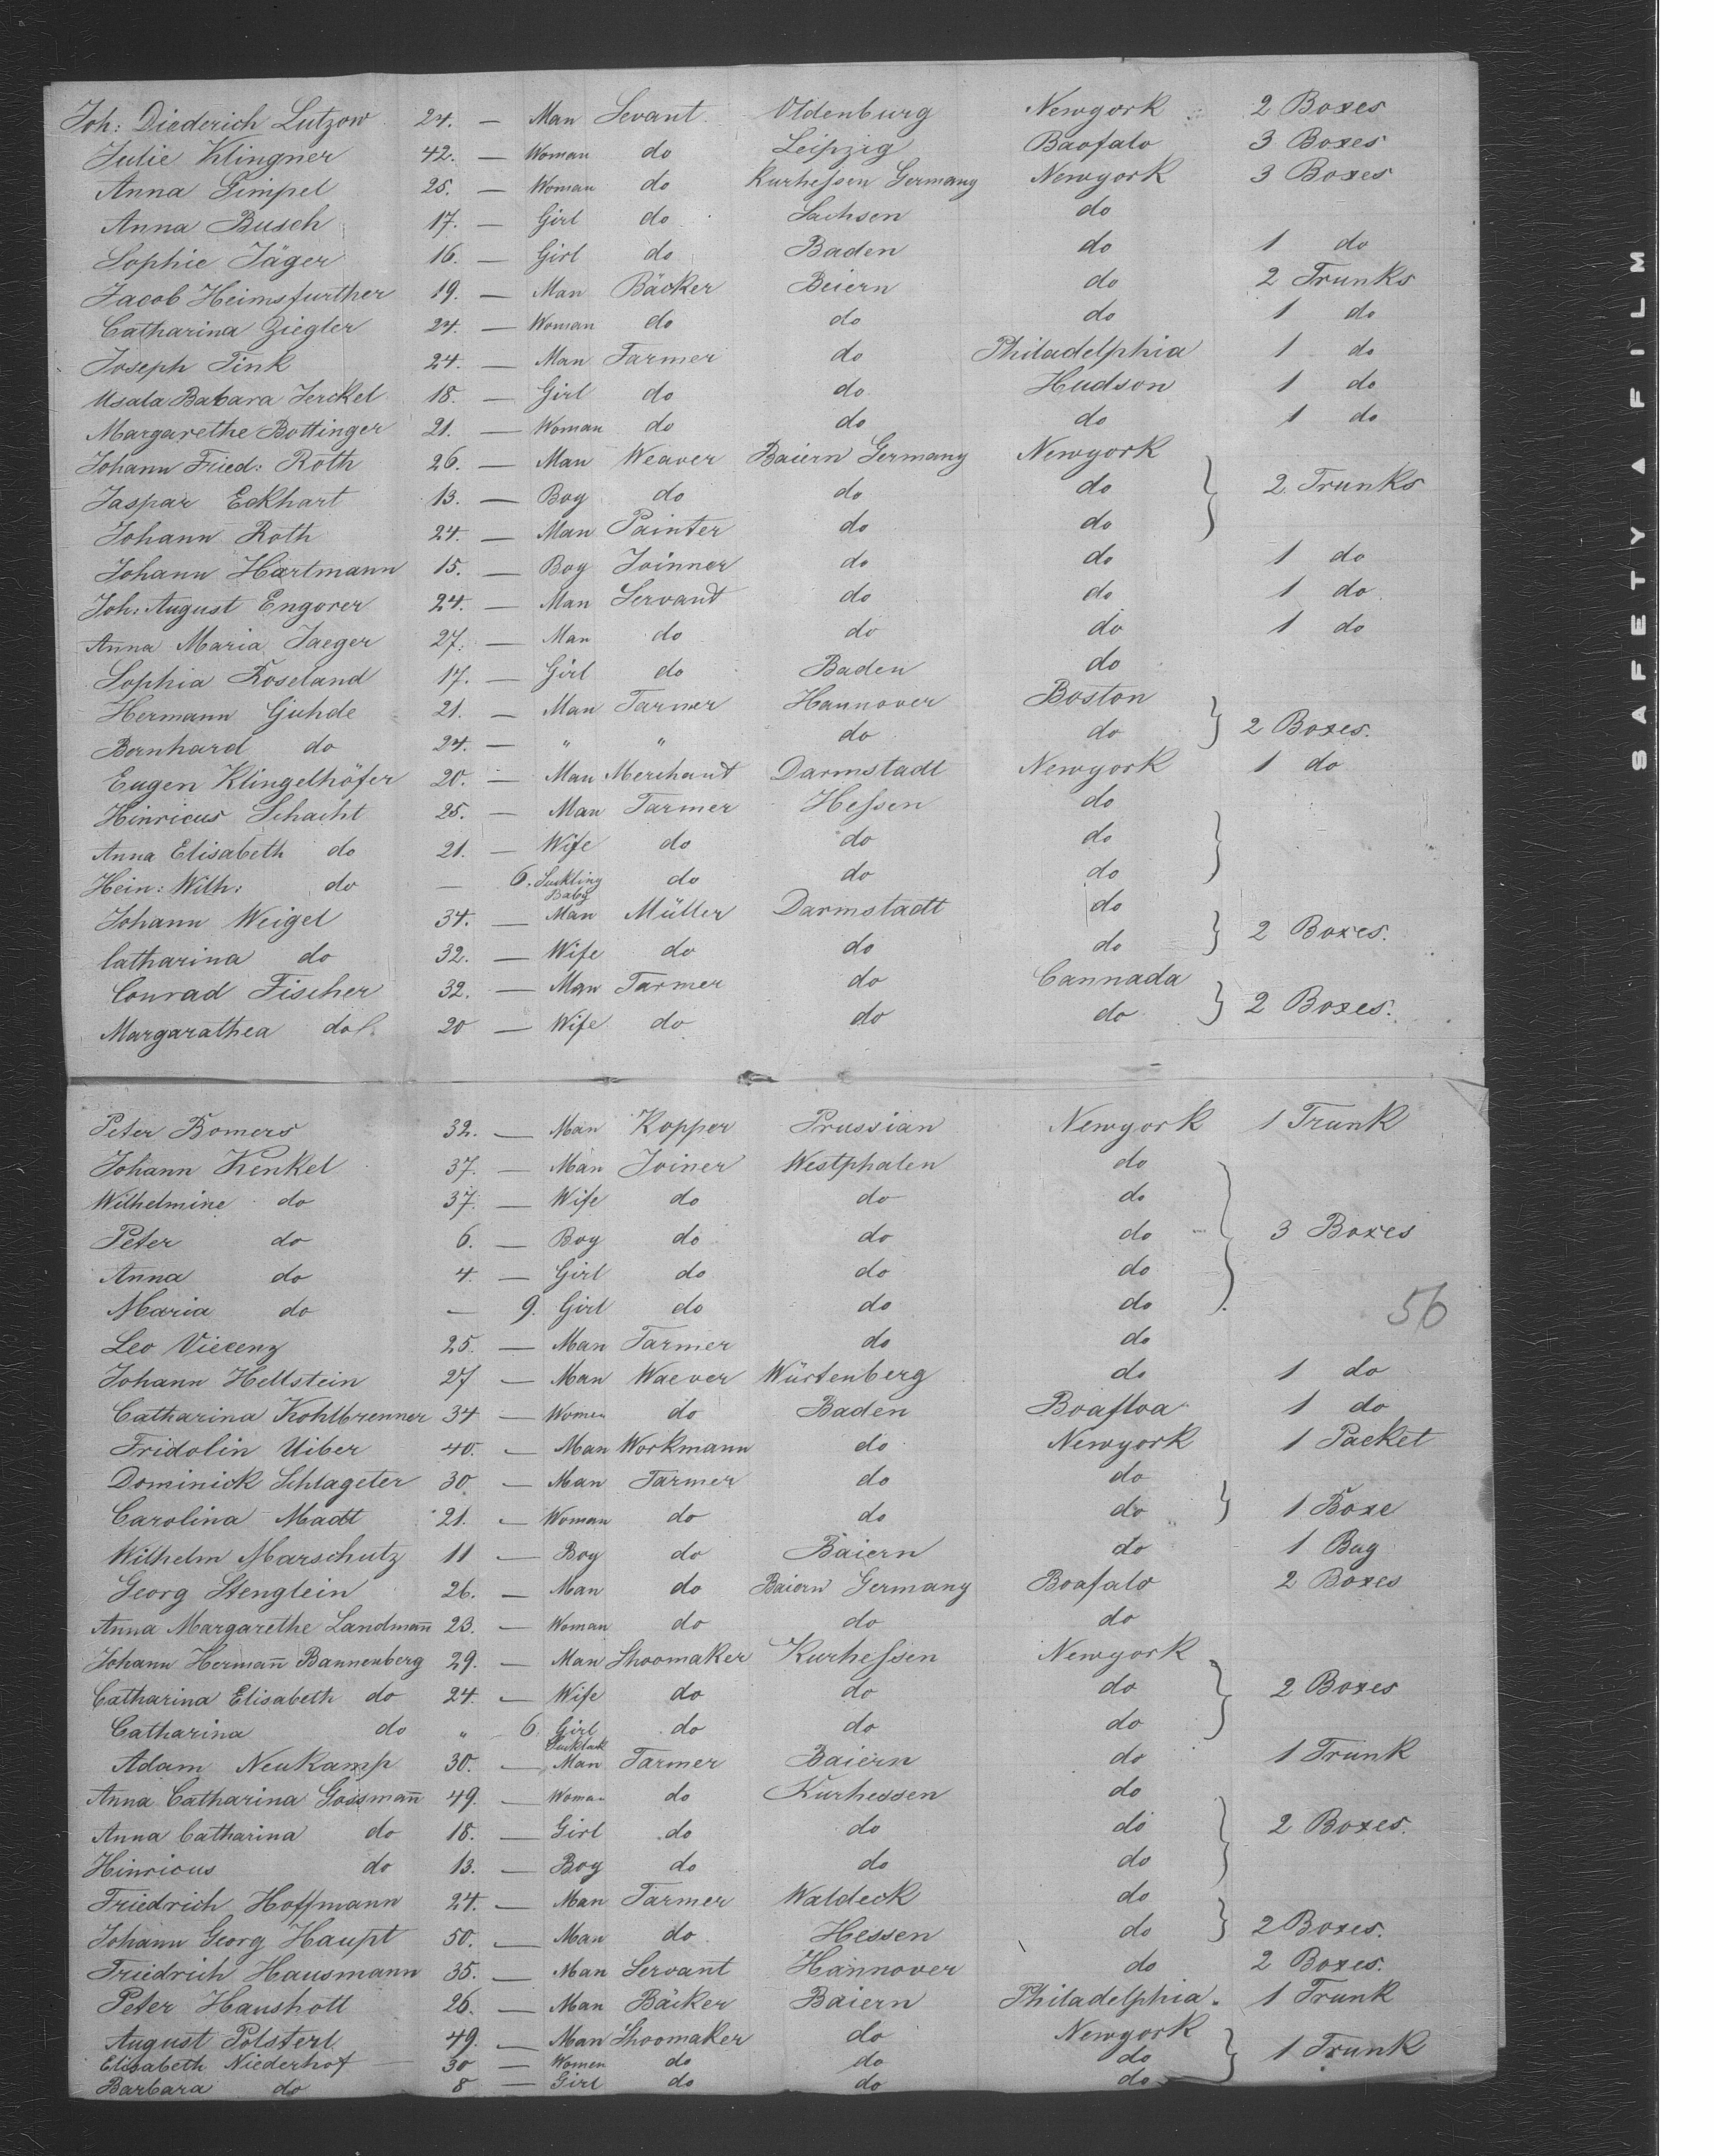 Joh: Diederich Lutzow 24. — Man Sevant Oldenburg Newyork 2 Boxes
Julie Klingner 42. — Woman do Leipzig Baofalo 3 Boxes
Anna Gimpel 25. — Woman do Kurhessen Germany Newyork 3 Boxes
Anna Busch 17. — Girl do Sachsen do
Sophie Jäger 16. — Girl do Baden do 1 do
Jacob Heimsfurther 19. — Man Bäcker Beiern do 2 Trunks
Catharina Ziegler 24. — Woman do do do 1 do
Joseph Fink 24. — Man Farmer do Philadelphia 1 do
Usala Babara Jerckel 18. — Girl do do Hudson 1 do
Margarethe Bottinger 21. — Woman do do do 1 do
Johann Fried: Roth 26. — Man Weaver Baiern Germany Newyork
Jaspar Eckhart 13. — Boy do do do 2 Trunks
Johann Roth 24. — Man Painter do do
Johann Hartmann 15. — Boy Joinner do do 1 do
Joh: August Engorer 24. — Man Servant do do 1 do
Anna Maria Jaeger 27. — Man do do do 1 do
Sophia Roseland 17. — Girl do Baden do
Hermann Guhde 21. — Man Farmer Hannover Boston
Bernhard do 24. — " " do do 2 Boxes.
Eugen Klingelhöfer 20. — Man Merchant Darmstadt Newyork 1 do
Hinricus Schacht 25. — Man Farmer Hessen do
Anna Elisabeth do 21. — Wife do do do
Hein: Wilh: do — 6. Suckling Baby do do do
Johann Weigel 34. — Man Müller Darmstadt do
Catharina do 32. — Wife do do do 2 Boxes.
Conrad Fischer 32. — Man Farmer do Cannada
Margarathea do 20 — Wife do do do 2 Boxes.
Peter Bomers 32. — Man Kopper Prussian Newyork 1 Trunk
Johann Kenkel 37. — Man Joiner Westphalen do
Wilhelmine do 37. — Wife do do do
Peter do 6. — Boy do do do 3 Boxes
Anna do 4. — Girl do do do
Maria do — 9. Girl do do do
56
Leo Viecenz 25. — Man Farmer do do
Johann Hellstein 27 — Man Waever Würtenberg do 1 do
Catharina Kohlbrenner 34 — Women do Baden Boafloa 1 do
Fridolin Uiber 40. — Man Workmann do Newyork 1 Packet
Dominick Schlageter 30. — Man Farmer do do
Carolina Madt 21. — Woman do do do 1 Boxe
Wilhelm Marschutz 11 — Boy do Baiern do 1 Bag
Georg Stenglein 26. — Man do Baiern Germany Boafalo 2 Boxes
Anna Margarethe Landmañ 23. — Woman do do do
Johann Hermañ Bannenberg 29. — Man Shoomaker Kurhessen Newyork
Catharina Elisabeth do 24. — Wife do do do 2 Boxes
Catharina do " 6. Girl do do do
Adam Neukamp 30. — Man Farmer Baiern do 1 Trunk
Anna Catharina Gossmañ 49. — Woman do Kurhessen do
Anna Catharina do 18. — Girl do do do 2 Boxes.
Hinricus do 13. — Boy do do do
Friedrich Hoffmann 24. — Man Farmer Waldeck do
Johann Georg Haupt 50. — Man do Hessen do 2 Boxes.
Friedrich Hausmann 35. — Man Servant Hannover do 2 Boxes.
Peter Haushott 26. — Man Bäcker Baiern Philadelphia. 1 Trunk
August Polsterl 49. — Man Shoomaker do Newyork
Elisabeth Niederhof 30 — Women do do do 1 Trunk
Barbara do 8 — Girl do do do
SAFETY A FILM